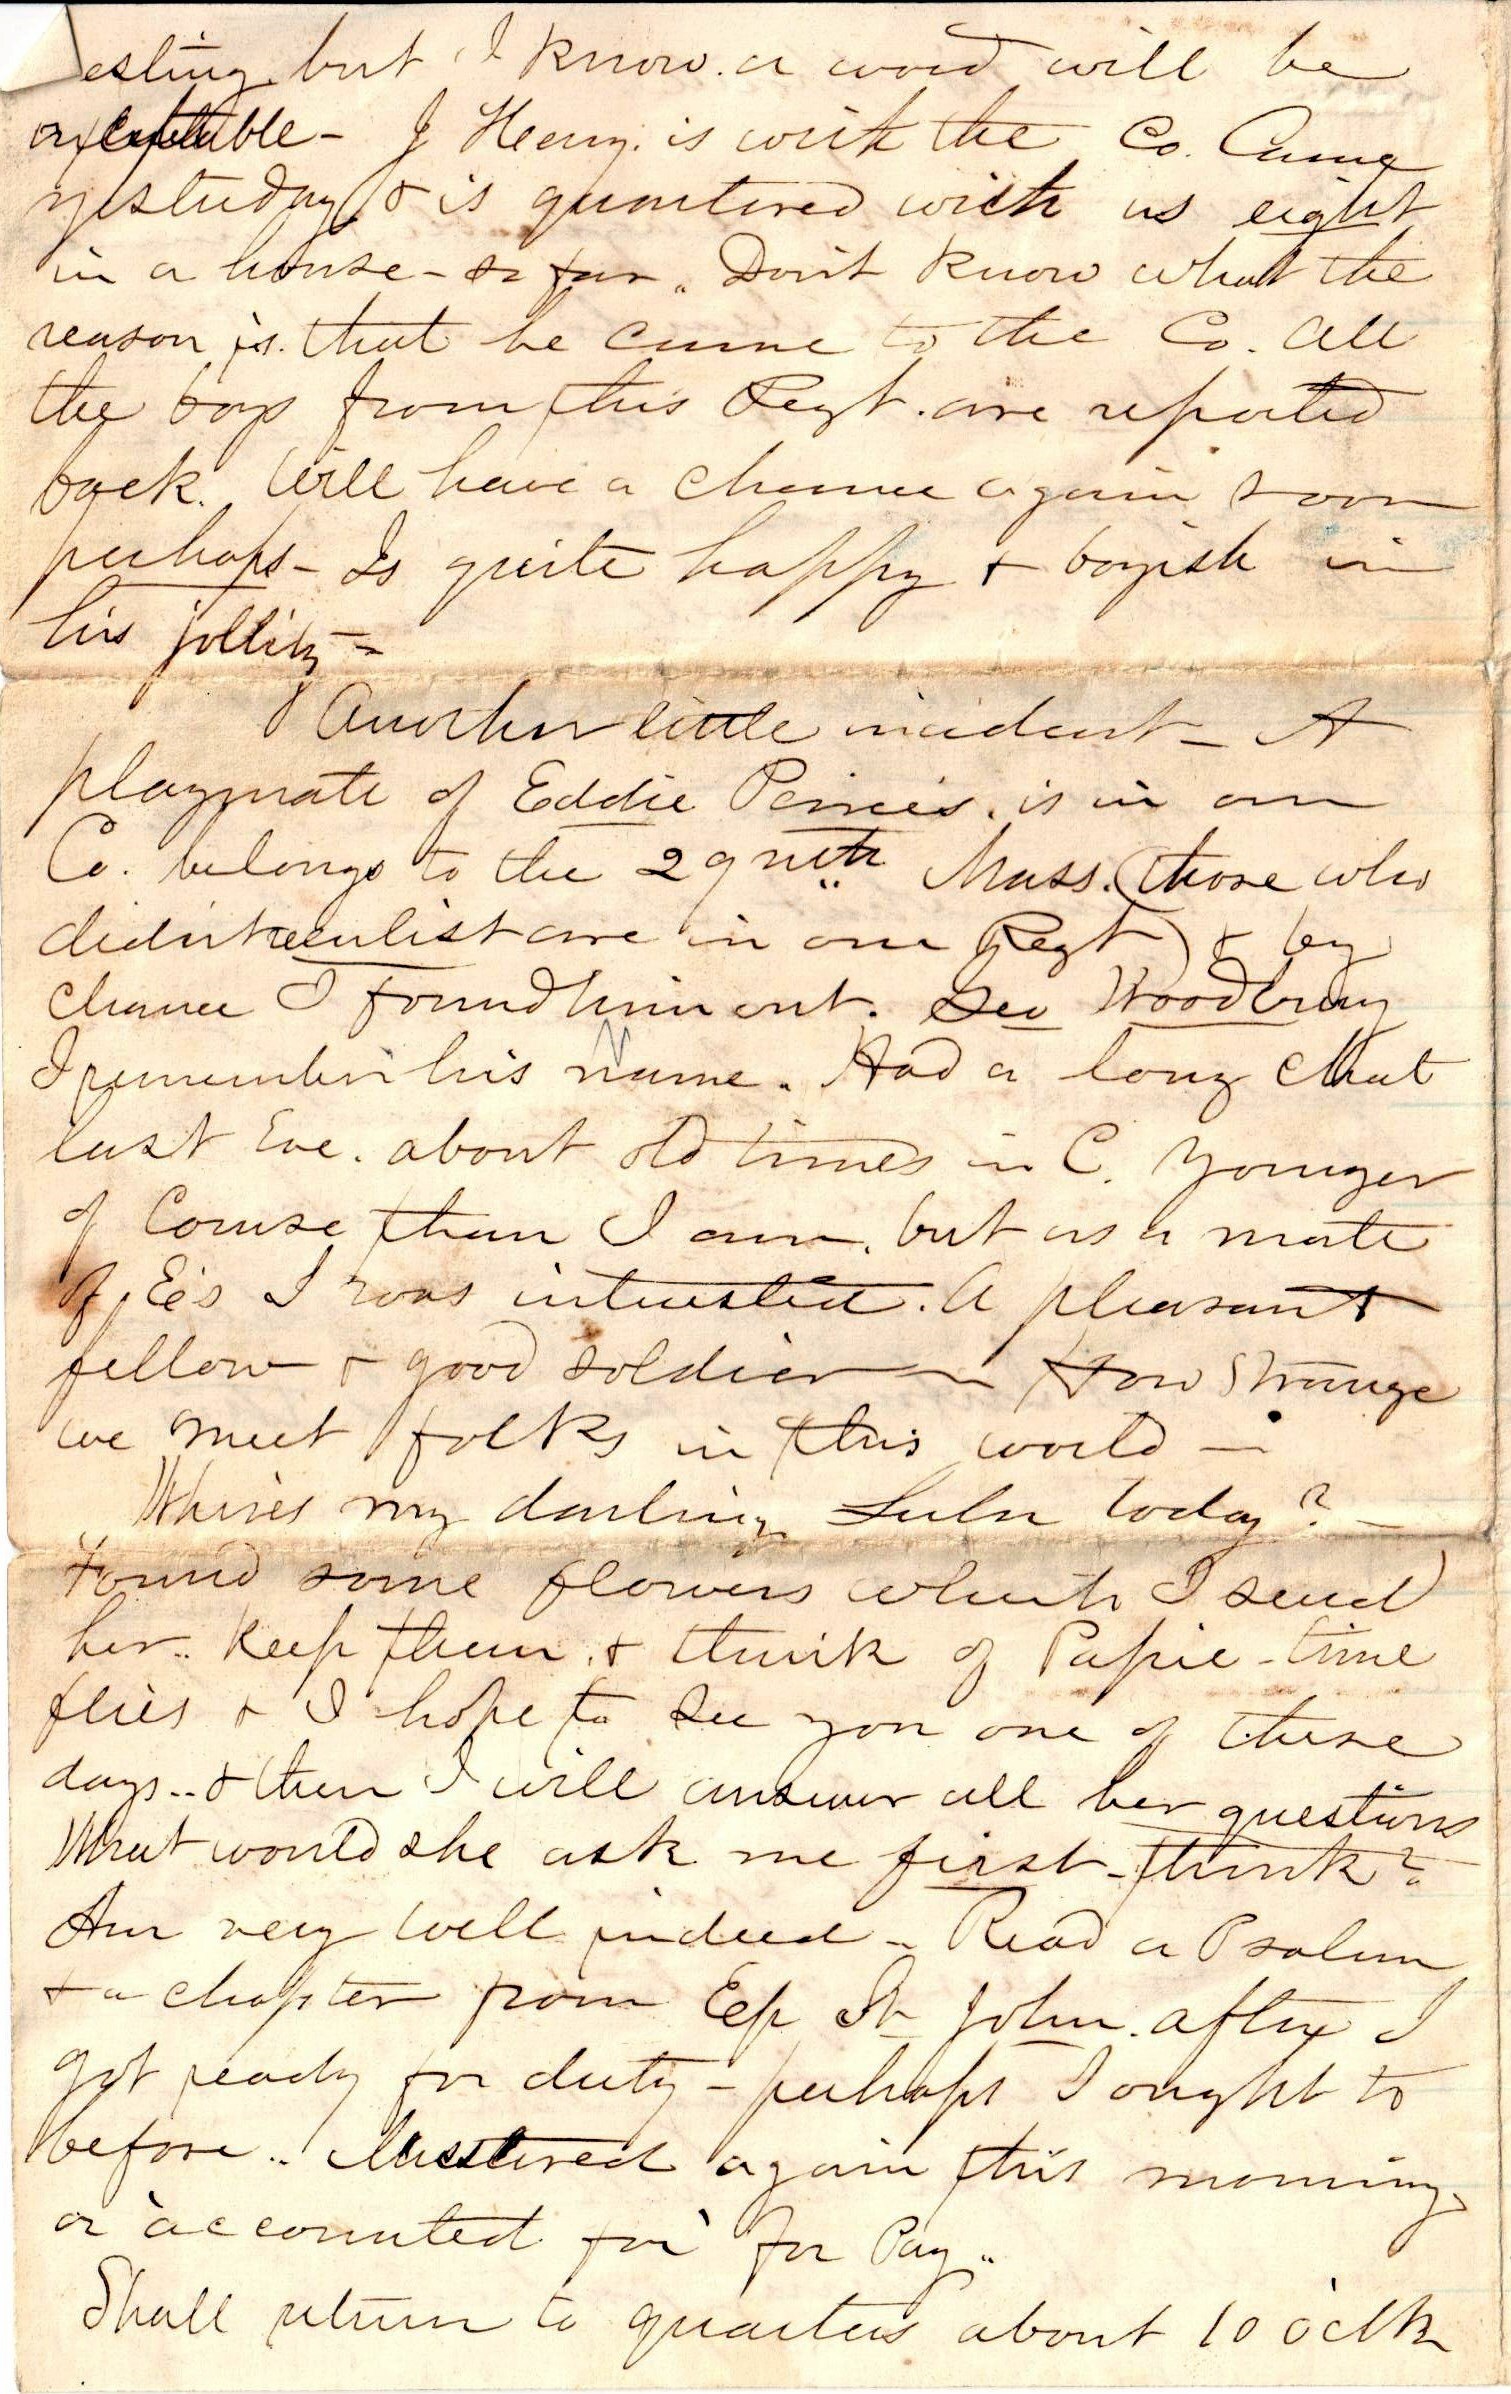 esting but I know a word will be
acceptable - J Henry is with the Co. Came
yesterday & is quartered with us eight
in a house - so far. Don't know what the
reason is that he came to the Co. All
the boys from this Regt. are reported
back. Will have a chance again soon
perhaps - Is quite happy & boyish in
his jollity -
Another little incident - A
playmate of Eddie is in our
Co. belongs to the 29nth Mass. (those who
didn't reenlist are in our Regt) & by
chance I found him out. Geo Woodbury
I remember his name. Had a long chat
last Eve. about old times in C. Younger
of Course than I am. but as a mate
of E's I was interested. A pleasant
fellow & good soldier - How strange
we meet folks in this world -
Where's my darling Lulu today? -
Found some flowers which I send
her.. Keep them & think of Papie - time
flies & I hope to see you one of these
days.. & then I will answer all her questions
What would she ask me first - think?
Am very well indeed - Read a Psalm
& a chapter from Ep St John. after I
got ready for duty - perhaps I ought to
before.. Mustered again this morning
or 'accounted for' for Pay..
Shall return to quarters about 10 o'clk